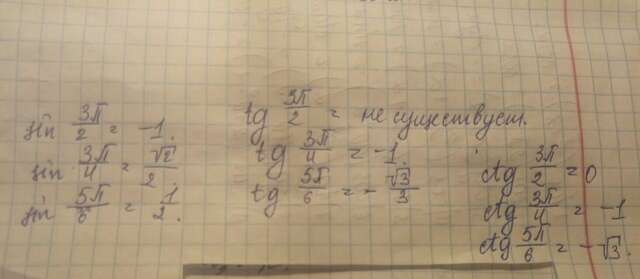 sin 3π/2 = -1.
sin 3π/4 = √2/2
sin 5π/6 = 1/2.
tg 3π/2 = не существует.
tg 3π/4 = -1.
tg 5π/6 = -√3/3
ctg 3π/2 = 0
ctg 3π/4 = -1
ctg 5π/6 = -√3.